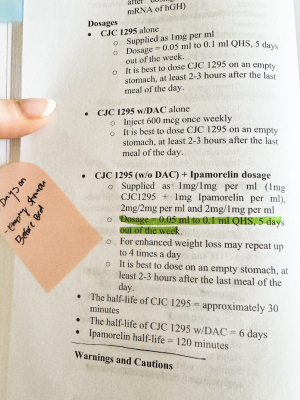 after
mRNA of hGH)
Dosages
• CJC 1295 alone
o Supplied as 1mg per ml
o Dosage = 0.05 ml to 0.1 ml QHS, 5 days
out of the week.
o It is best to dose CJC 1295 on an empty
stomach, at least 2-3 hours after the last
meal of the day.
• CJC 1295 w/DAC alone
o Inject 600 mcg once weekly
o It is best to dose CJC 1295 on an empty
stomach, at least 2-3 hours after the last
meal of the day.
• CJC 1295 (w/o DAC) + Ipamorelin dosage
o Supplied as 1mg/1mg per ml (1mg
CJC1295 + 1mg Ipamorelin per ml),
2mg/2mg per ml and 2mg/1mg per ml
o Dosage = 0.05 ml to 0.1 ml QHS, 5 days
out of the week.
o For enhanced weight loss may repeat up
to 4 times a day
o It is best to dose on an empty stomach, at
least 2-3 hours after the last meal of the
day.
• The half-life of CJC 1295 = approximately 30
minutes
• The half-life of CJC 1295 w/DAC = 6 days
• Ipamorelin half-life = 120 minutes
Warnings and Cautions
Days on
Before Bed